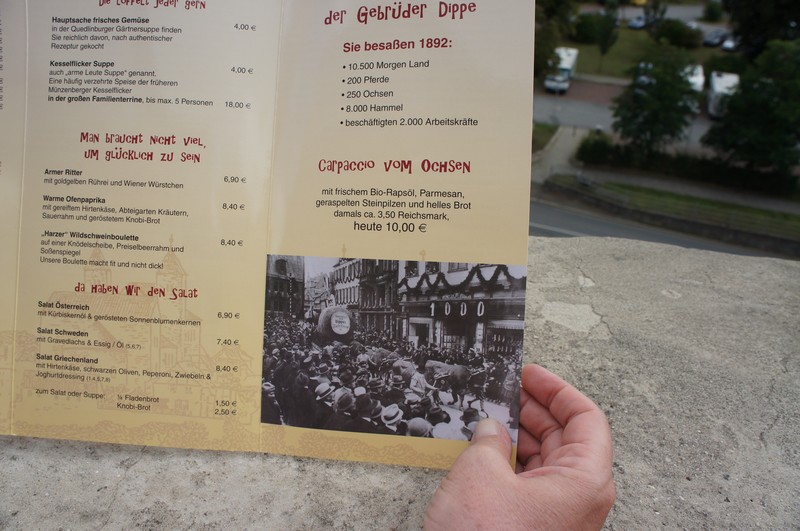 Die löffelt jeder gern
Hauptsache frisches Gemüse
in der Quedlinburger Gärtnersuppe finden 4,00 €
Sie reichlich davon, nach authentischer
Rezeptur gekocht
Kesselflicker Suppe
auch „arme Leute Suppe" genannt. 4,00 €
Eine häufig verzehrte Speise der früheren
Münzenberger Kesselflicker
in der großen Familienterrine, bis max. 5 Personen 18,00 €
Man braucht nicht viel,
um glücklich zu sein
Armer Ritter
mit goldgelben Rührei und Wiener Würstchen 6,90 €
Warme Ofenpaprika
mit gereiftem Hirtenkäse, Abteigarten Kräutern, 8,40 €
Sauerrahm und geröstetem Knobi-Brot
„Harzer" Wildschweinboulette
auf einer Knödelscheibe, Preiselbeerrahm und 8,40 €
Soßenspiegel
Unsere Boulette macht fit und nicht dick!
da haben wir den Salat
Salat Österreich
mit Kürbiskernöl & gerösteten Sonnenblumenkernen 6,90 €
Salat Schweden
mit Gravedlachs & Essig / Öl (5,6,7) 7,40 €
Salat Griechenland
mit Hirtenkäse, schwarzen Oliven, Peperoni, Zwiebeln & 8,40 €
Joghurtdressing (1,4,5,7,8)
zum Salat oder Suppe: ¼ Fladenbrot 1,50 €
Knobi-Brot 2,50 €
der Gebrüder Dippe
Sie besaßen 1892:
• 10.500 Morgen Land
• 200 Pferde
• 250 Ochsen
• 8.000 Hammel
• beschäftigten 2.000 Arbeitskräfte
Carpaccio vom Ochsen
mit frischem Bio-Rapsöl, Parmesan,
geraspelten Steinpilzen und helles Brot
damals ca. 3,50 Reichsmark,
heute 10,00 €
1000